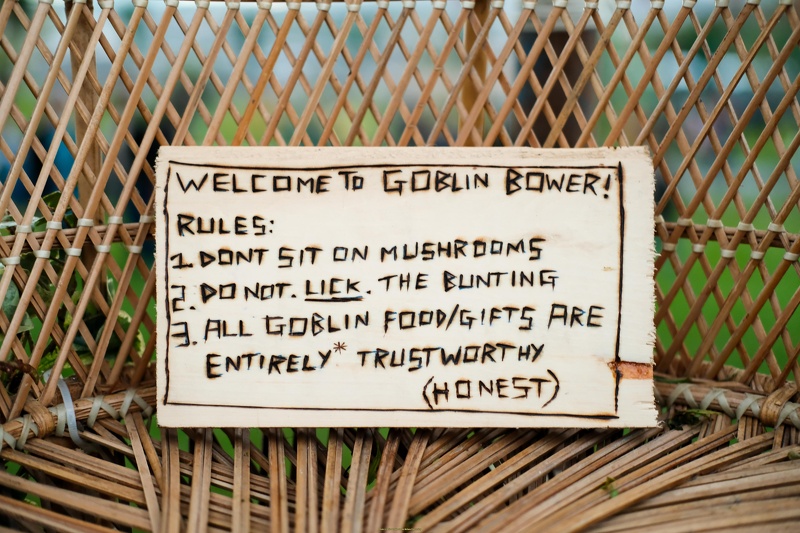 WELCOME TO GOBLIN BOWER!
RULES:
1. DONT SIT ON MUSHROOMS
2. DO NOT. LICK. THE BUNTING
3. ALL GOBLIN FOOD/GIFTS ARE
ENTIRELY* TRUSTWORTHY
(HONEST)